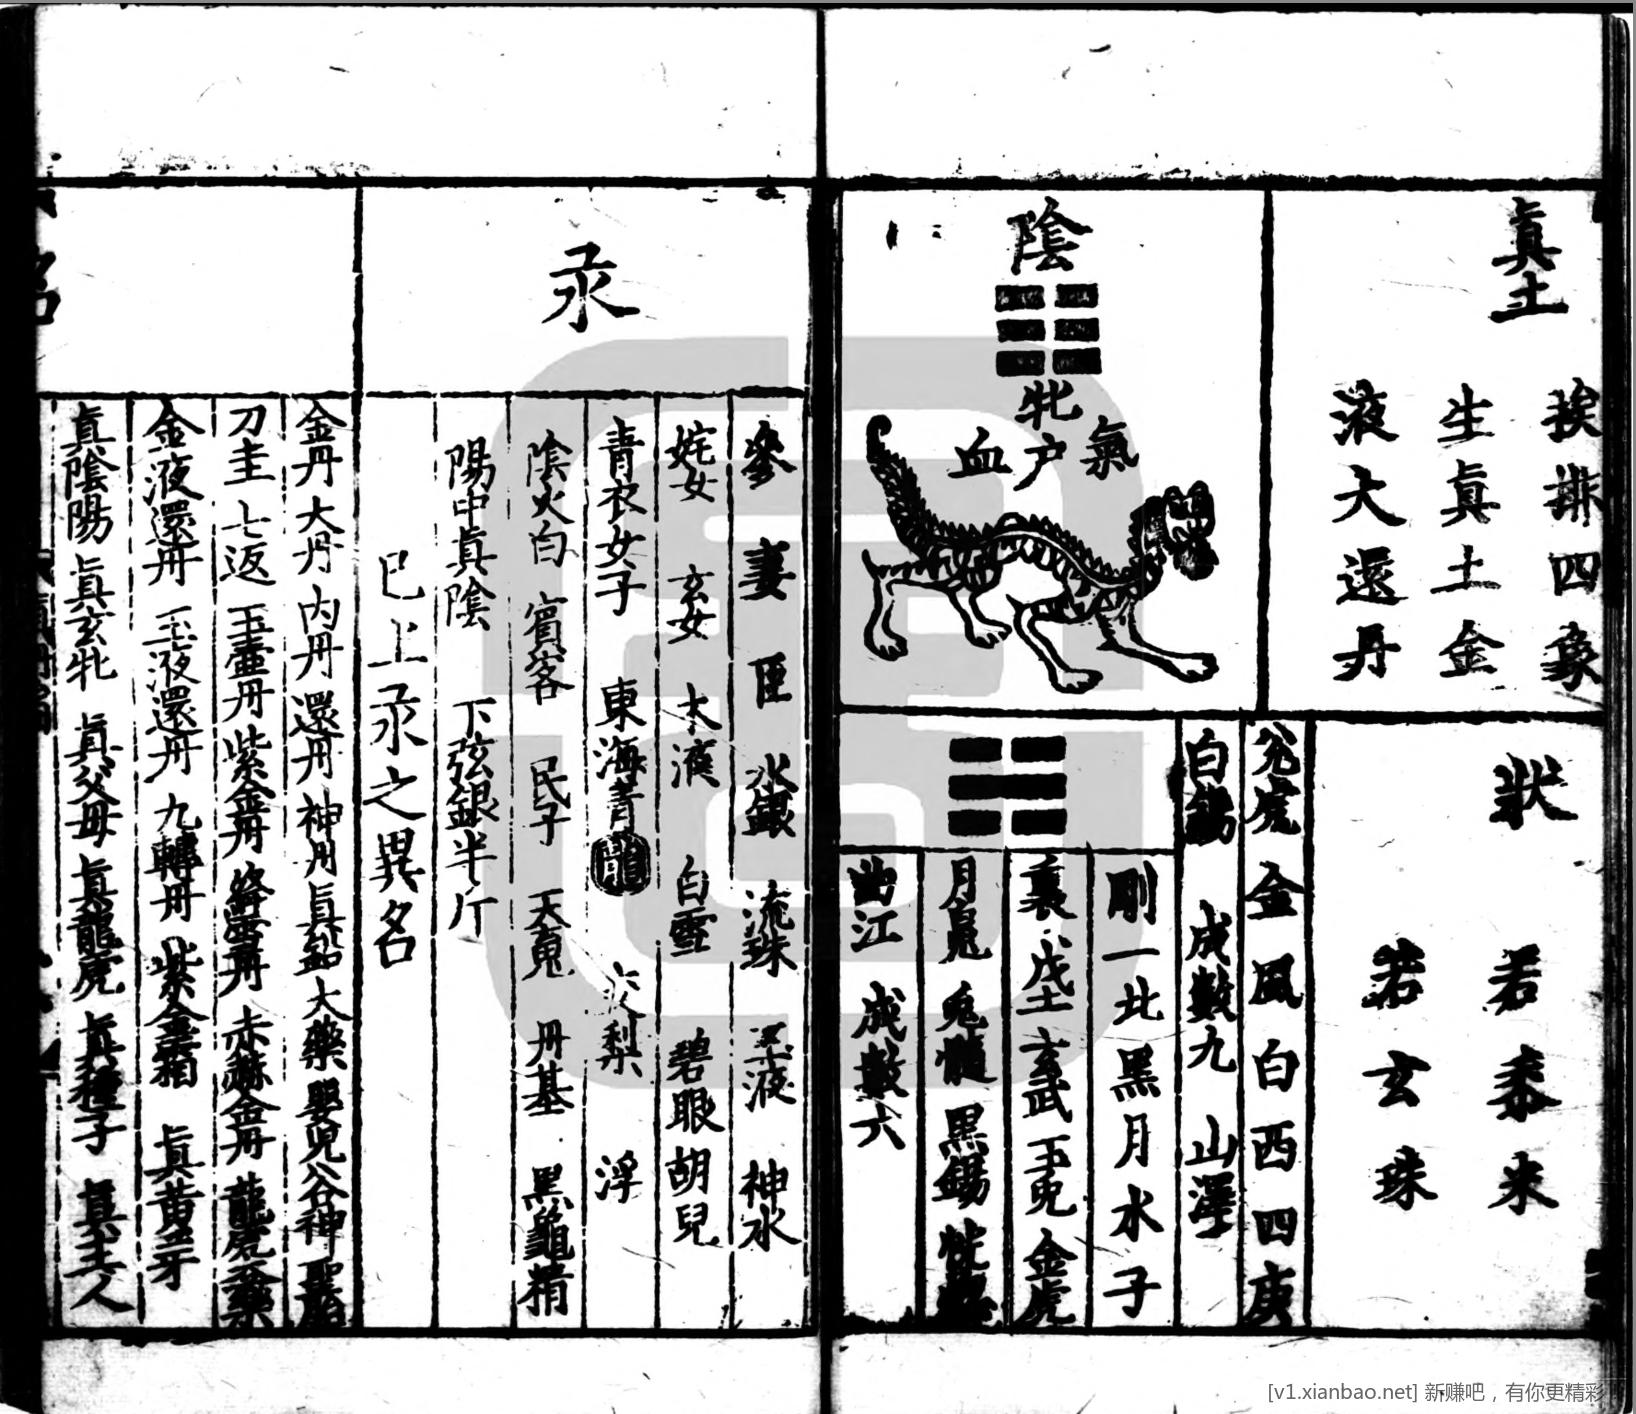 真土
挨排四象
生真土金
液大還丹
陰
牝
氣
户
血
狀
若黍米
若玄珠
兊虎金風白西四庚
白 成數九 山澤
剛一北黑月水子
裏戊土玄武玉兎金虎
月䰟兔髓黑錫
曲江 成數六
汞
妻 臣 水銀 流珠 液 神水
姹女 玄女 木液 白雪 碧眼胡兒
青衣女子 東海青龍 交梨 浮
陰火白 賓客 民子 天䰟 丹基 黑龜精
陽中真陰 下弦銀半斤
巳上汞之異名
名
金丹大丹内丹還丹神丹真鉛大藥嬰兒谷神
刀圭 七返 玉壷丹紫金丹 赤赫金丹龍虎
金液還丹 玉液還丹 九轉丹 紫金霜 真黄芽
真陰陽 真玄牝 真父母 真龍虎 真種子 真主人
[v1.xianbao.net] 新赚吧，有你更精彩